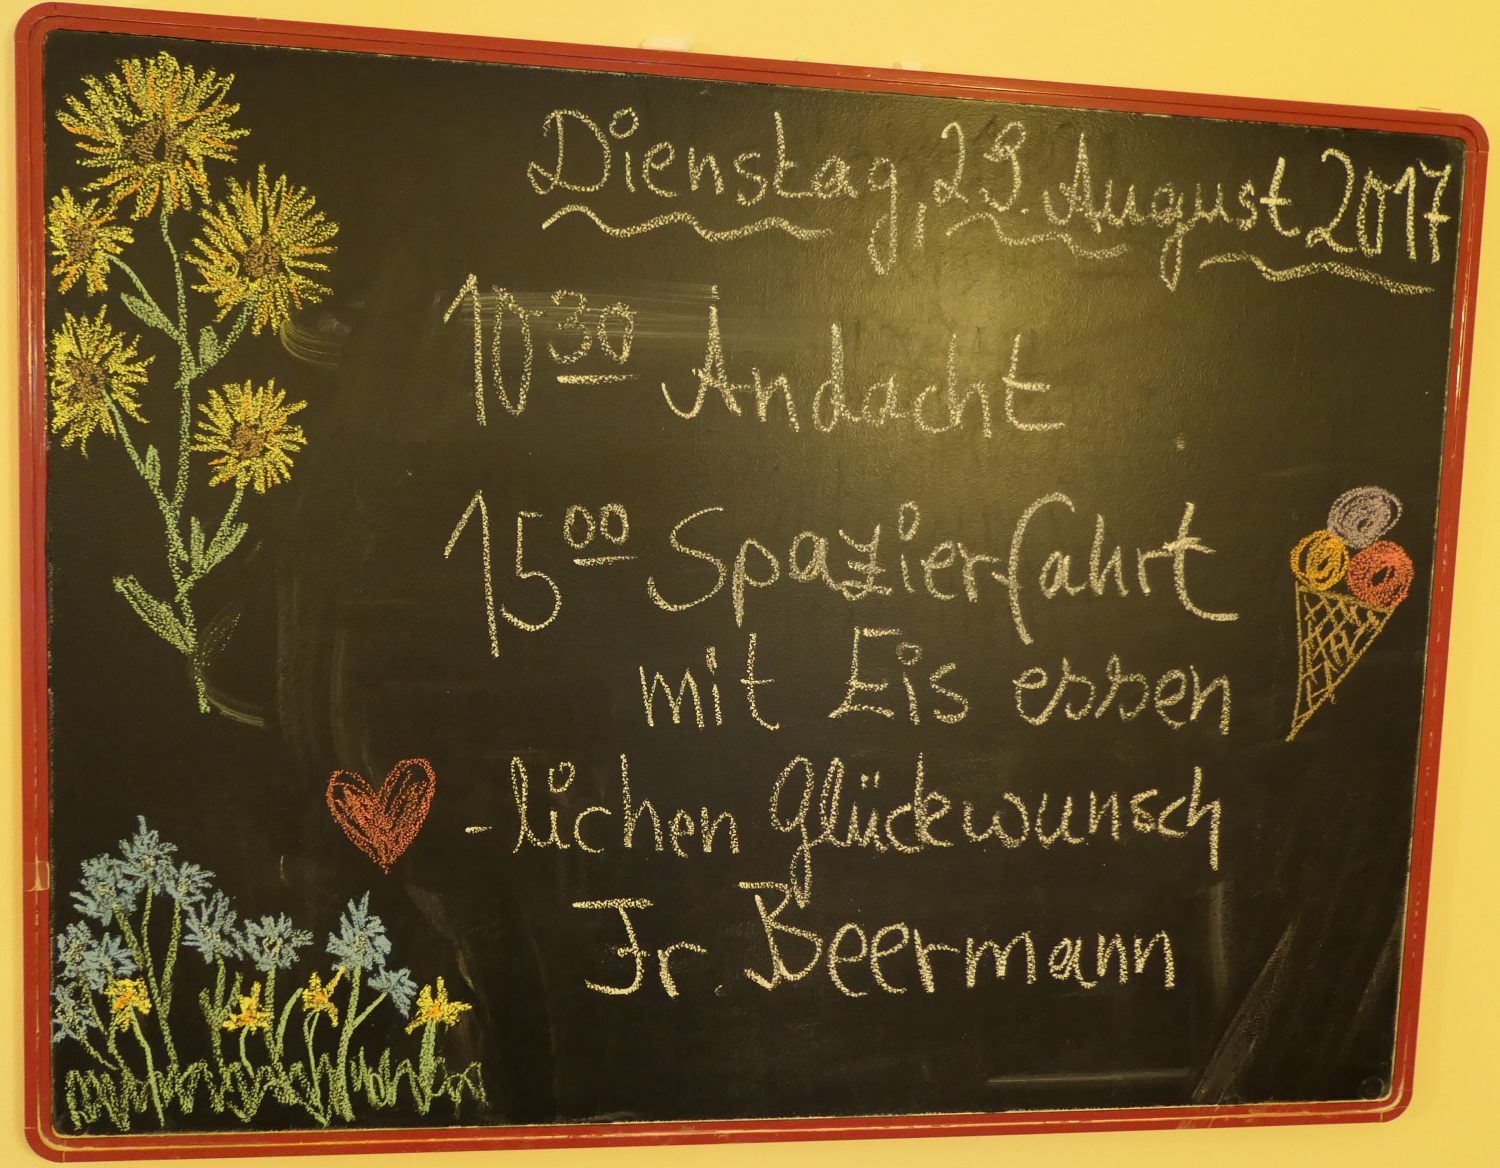 Dienstag, 29. August 2017
10 30 Andacht
15 00 Spazierfahrt
mit Eis essen
-lichen Glückwunsch
Fr. Beermann